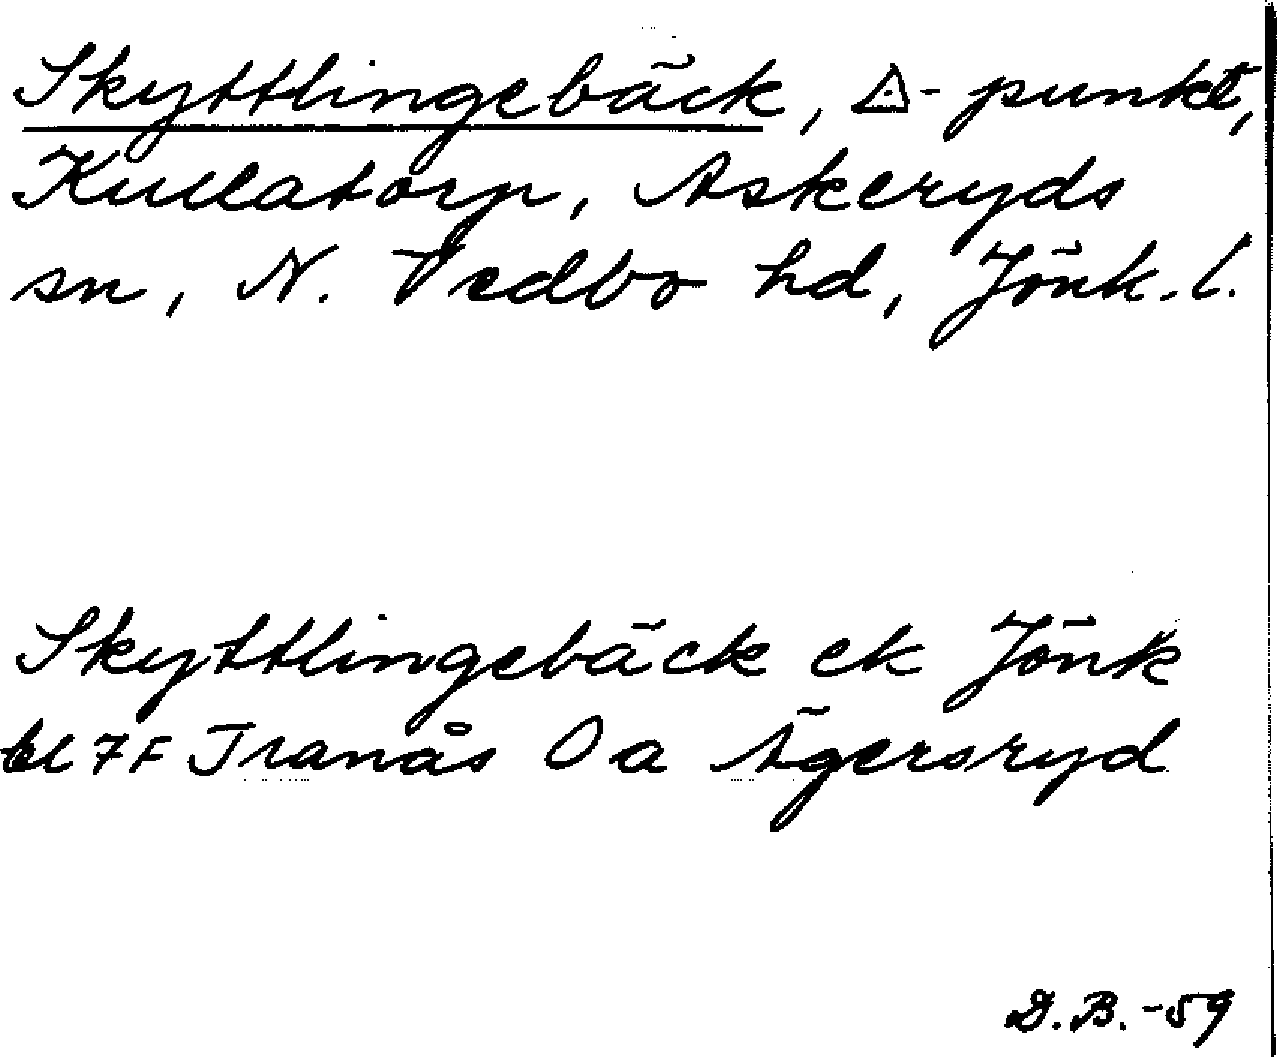 Skyttlingebäck, △-punkt,
Kullatorp, Askeryds
sn, N. Vedbo hd, Jönk. l.
Skyttlingebäck ek Jönk
bl 7F Tranås Oa Ägersryd
D.B.-59